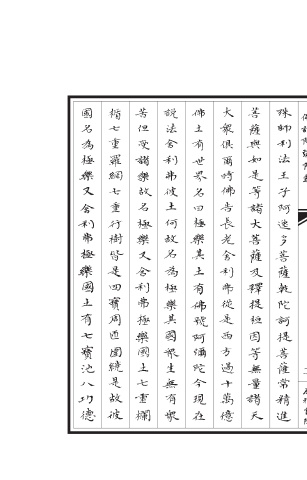 殊師利法王子阿逸多菩薩乾陀訶提菩薩常精進
菩薩與如是等諸大菩薩及釋提桓因等無量諸天
大眾俱爾時佛告長老舍利弗從是西方過十萬億
佛土有世界名曰極樂其土有佛號阿彌陀今現在
說法舍利弗彼土何故名為極樂其國眾生無有眾
苦但受諸樂故名極樂又舍利弗極樂國土七重欄
楯七重羅網七重行樹皆是四寶周匝圍繞是故彼
國名為極樂又舍利弗極樂國土有七寶池八功德